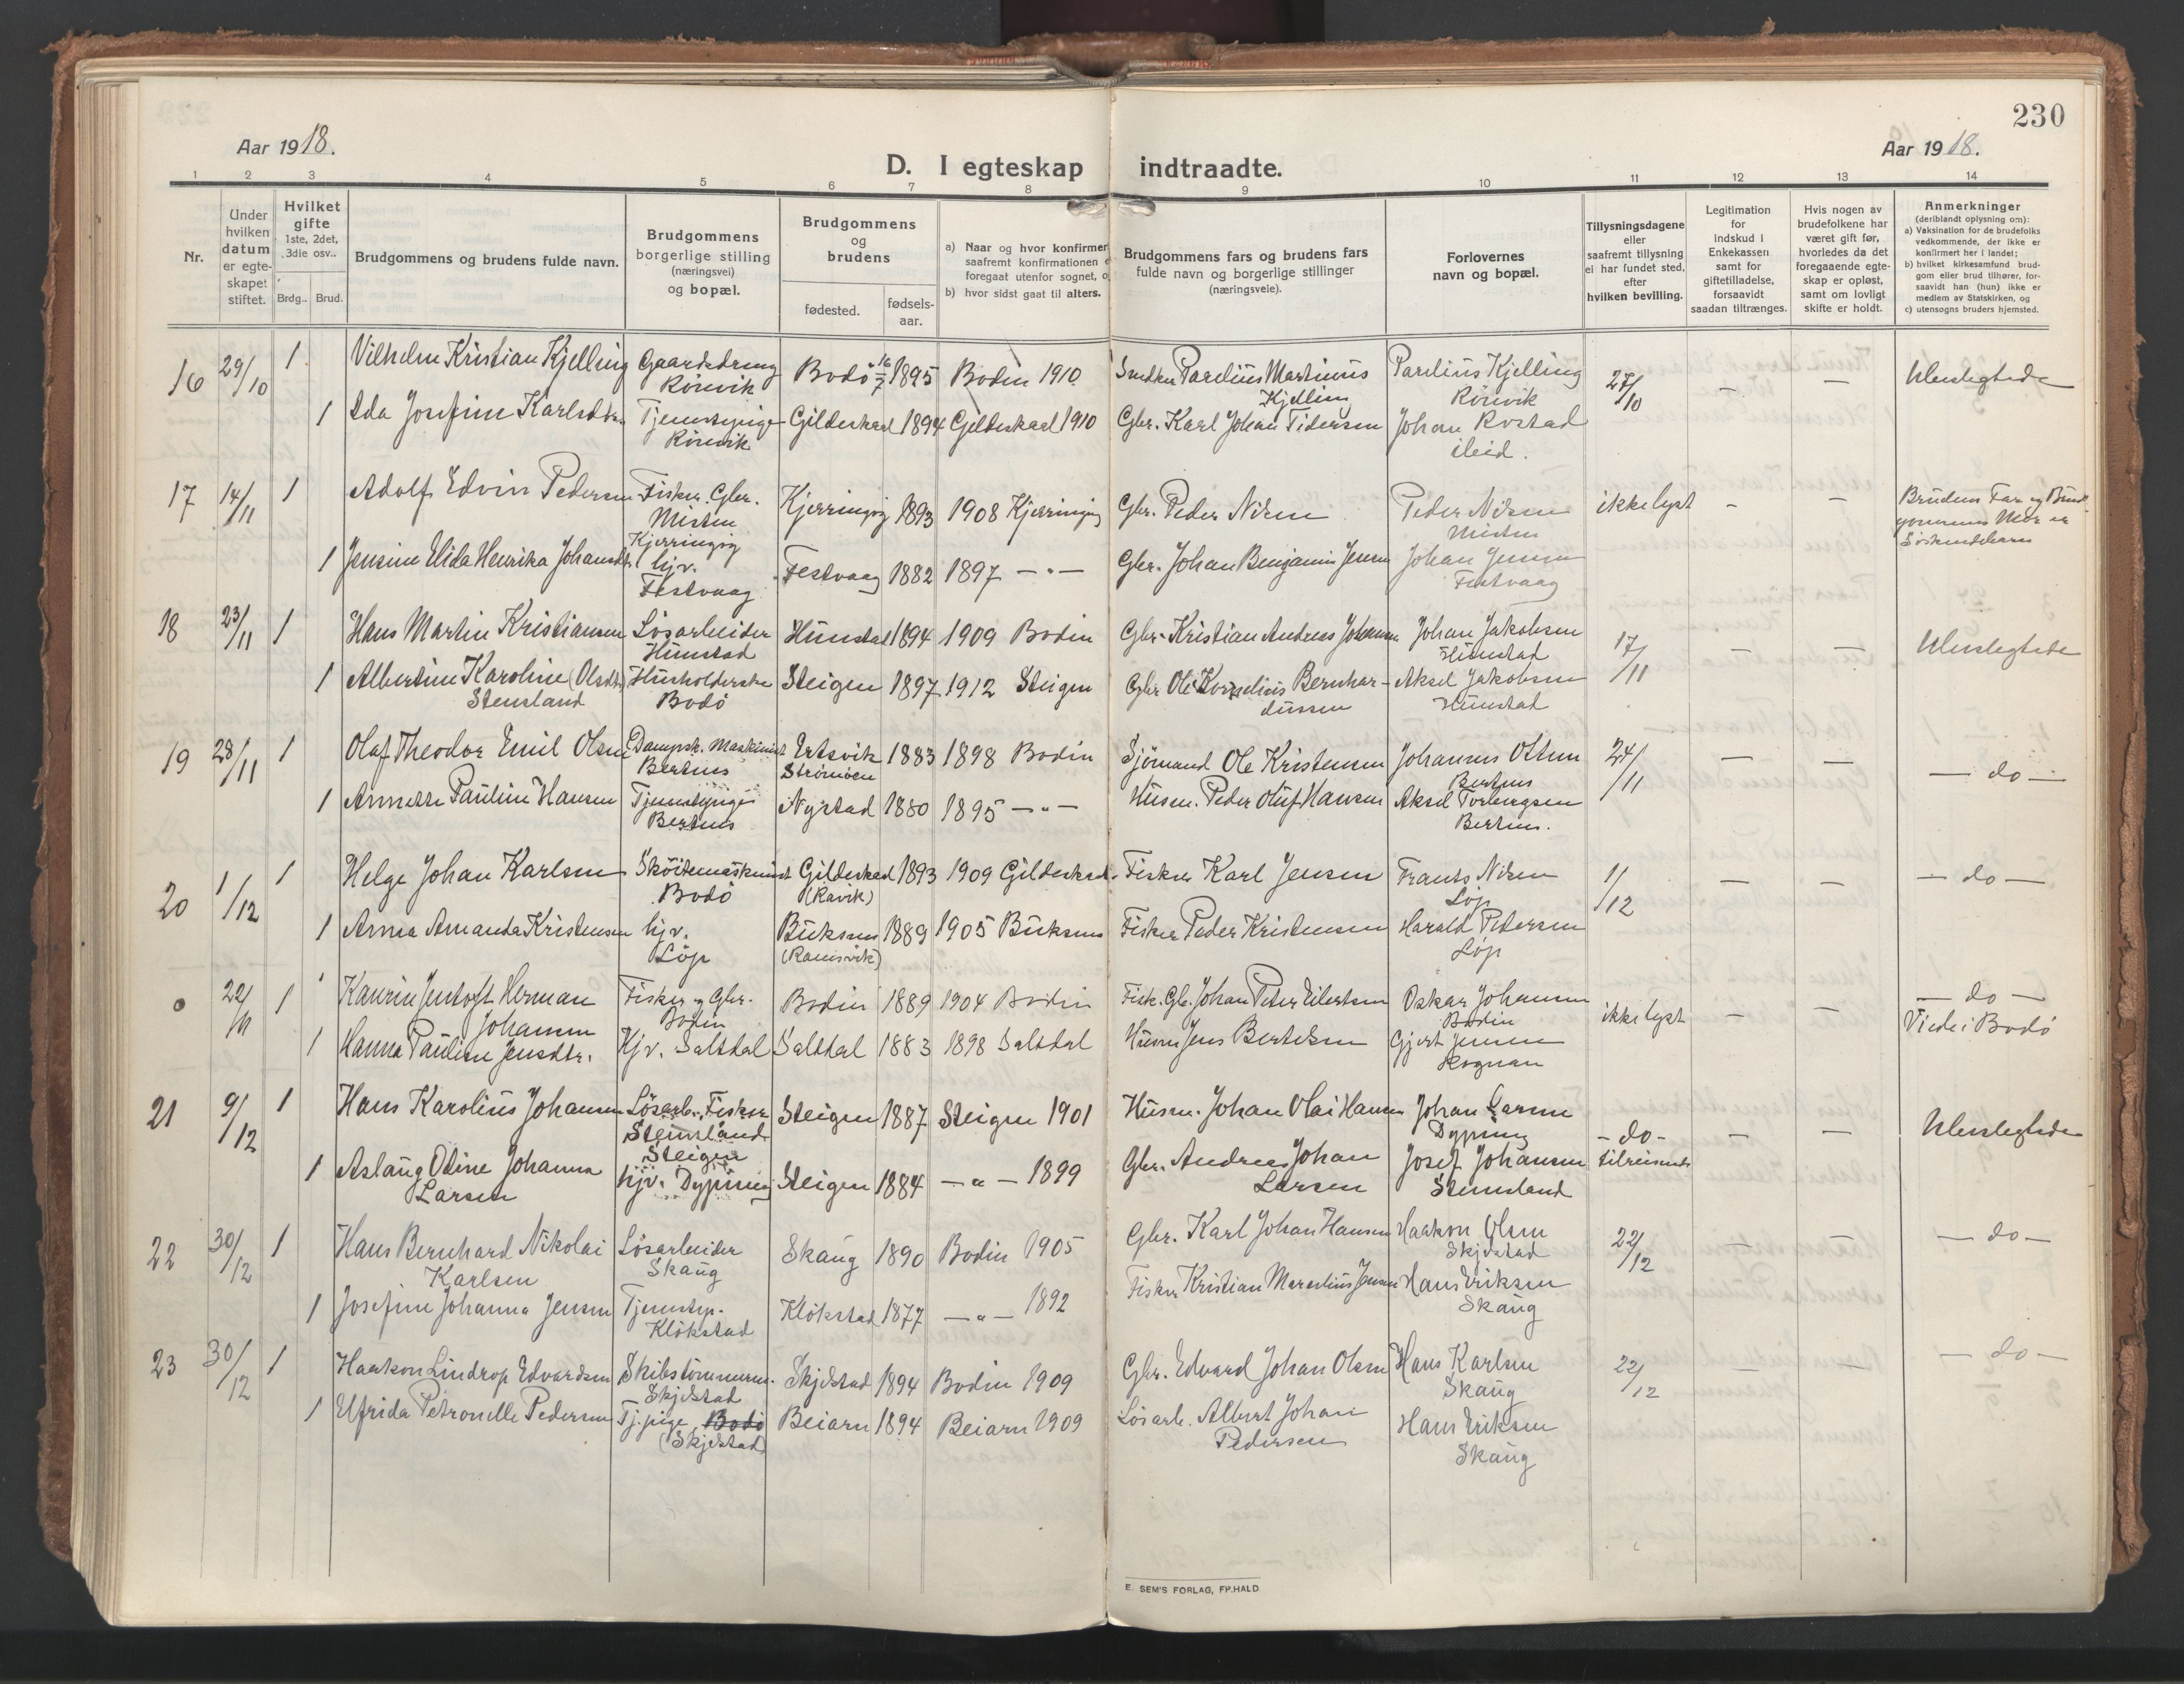 230
Aar 1918.
D. I egteskap indtraadte.
Aar 1918.
1 2 3 4 5 6 7 8 9 10 11 12 13 14
Nr.
Under hvilken datum er egteskapet stiftet.
Hvilket gifte 1ste, 2det, 3die osv..
Brdg.. Brud.
Brudgommens og brudens fulde navn.
Brudgommens borgerlige stilling (næringsvei) og bopæl.
Brudgommens og brudens
fødested.
fødsels-aar.
a) Naar og hvor konfirmer
saafremt konfirmationen
foregaat utenfor sognet, o
b) hvor sidst gaat til alters.
Brudgommens fars og brudens fars
fulde navn og borgerlige stillinger
(næringsveie).
Forlovernes
navn og bopæl.
Tillysningsdagene
eller
saafremt tillysning
ei har fundet sted,
efter
hvilken bevilling.
Legitimation
for
indskud i
Enkekassen
samt for
giftetilladelse,
forsaavidt
saadan tiltrænges.
Hvis nogen av
brudefolkene har
været gift før,
hvorledes da det
foregaaende egte-
skap er opløst,
samt om lovligt
skifte er holdt.
Anmerkninger
(deriblandt oplysning om):
a) Vaksination for de brudefolks
vedkommende, der ikke er
konfirmert her i landet;
b) hvilket kirkesamfund brud-
gom eller brud tilhører, for-
saavidt han (hun) ikke er
medlem av Statskirken, og
c) utensogns bruders hjemsted.
16 29/10 1 Vilhelm Kristian Kjelling Gaardsdreng Rönvik Bodö 16/7 1895 Bodin 1910 Snedker Parelius Martinus Kjelling Parelius Kjelling Rönvik 27/10 — — Ubeslegtede
1 Ida Josefine Karlsdtr. Tjenestepige Rönvik Gildeskaal 1894 Gildeskaal 1910 Gbr. Karl Johan Tidersen Johan Rostad ibid.
17 14/11 1 Adolf Edvin Pedersen Fisker. Gbr. Misten Kjerringöy Kjerringöy 1893 1908 Kjerringöy Gbr. Peder Nilsen Peder Nilsen Misten ikke lyst — — Brudens Far og Brudgommens Mor er Söskendebarn
1 Jensine Elida Henrika Johansdtr. hjv. Festvaag Festvaag 1882 1897 —"— Gbr. Johan Benjamin Jensen Johan Jensen Festvaag
18 23/11 1 Hans Martin Kristiansen Lösarbeider Hunstad Hunstad 1894 1909 Bodin Gbr. Kristian Andreas Johansen Johan Jakobsen Hunstad 17/11 — — Ubeslegtede
1 Albertine Karoline (Olsdtr) Stensland Husholderske Bodö Steigen 1897 1912 Steigen Gbr Ole Kornelius Bernhardussen Aksel Jakobsen Hunstad
19 28/11 1 Olaf Theodor Emil Olsen Dampsk. Maskinist Bertnes Ertsvik Strömöen 1883 1898 Bodin Sjömand Ole Kristensen Johannes Olsen Bertnes 24/11 — — —do—
1 Annette Pauline Hansen Tjenestepige Bertnes Nystad 1880 1895 —"— Husm. Peder Oluf Hansen Aksel Torbergsen Bertnes.
20 1/12 1 Helge Johan Karlsen Sköitemaskinist Bodö Gildeskaal (Ravik) 1893 1909 Gildeskaal Fisker Karl Jensen Frants Nilsen Löp 1/12 — — —do—
1 Anna Amanda Kristensen hjv. Löp Buksnes 1889 1905 Buksnes Fisker Peder Kristensen Harald Pedersen Löp
0 22/11 1 Kaurin Jentoft Herman Johansen Fisker og Gbr. Bodin Bodin 1889 1904 Bodin Fisk. Gb. Johan Peter Eilertsen Oskar Johansen Bodin ikke lyst — — —do— Viede i Bodö
1 Hanna Pauline Jensdtr. Hjv. Saltdal Saltdal 1883 1898 Saltdal Husm Jens Bertelsen Gjert Jensen Rognan
21 9/12 1 Hans Karolius Johansen Lösarb. Fisker Stensland Steigen Steigen 1887 Steigen 1901 Husm. Johan Olai Hansen Johan Larsen Dyping —do— tilreisende — — Ubeslegtede
1 Aslaug Otine Johanna Larsen hjv. Dyping Steigen 1884 —"— 1899 Gbr. Andreas Johan Larsen Josef Johansen Stensland
22 30/12 1 Hans Bernhard Nikolai Karlsen Lösarbeider Skaug Skaug 1890 Bodin 1905 Gbr. Karl Johan Hansen Haakon Olsen Skjelstad 22/12 — — —do—
1 Josefine Johanna Jensen Tjenestep. Klökstad Klökstad 1877 —"— 1892 Fisker Kristian Marselius Jensen Hans Eriksen Skaug
23 30/12 1 Haakon Lindrop Edvardsen Skibstömmerm. Skjelstad Skjelstad 1894 Bodin 1909 Gbr. Edvard Johan Olsen Hans Karlsen Skaug 22/12 — — —do—
1 Elfrida Petronelle Pedersen Tj.pige Bodö (Skjelstad) Beiarn 1894 Beiarn 1909 Lösarb. Albert Johan Pedersen Hans Eriksen Skaug
E. SEM'S FORLAG, FR.HALD